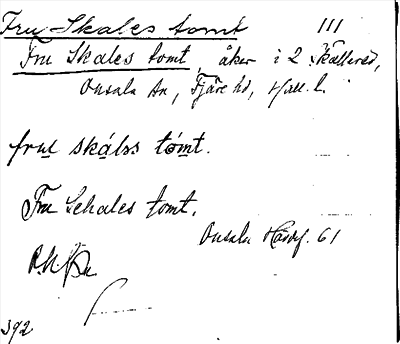 Fru Skales tomt 111
Fru Skales tomt, åker i 2 Källered,
Onsala sn, Fjäre hd, Hall. l.
frɯ skáləs tómt.
Fru Schales tomt.
Onsala Hdskf. 61
392